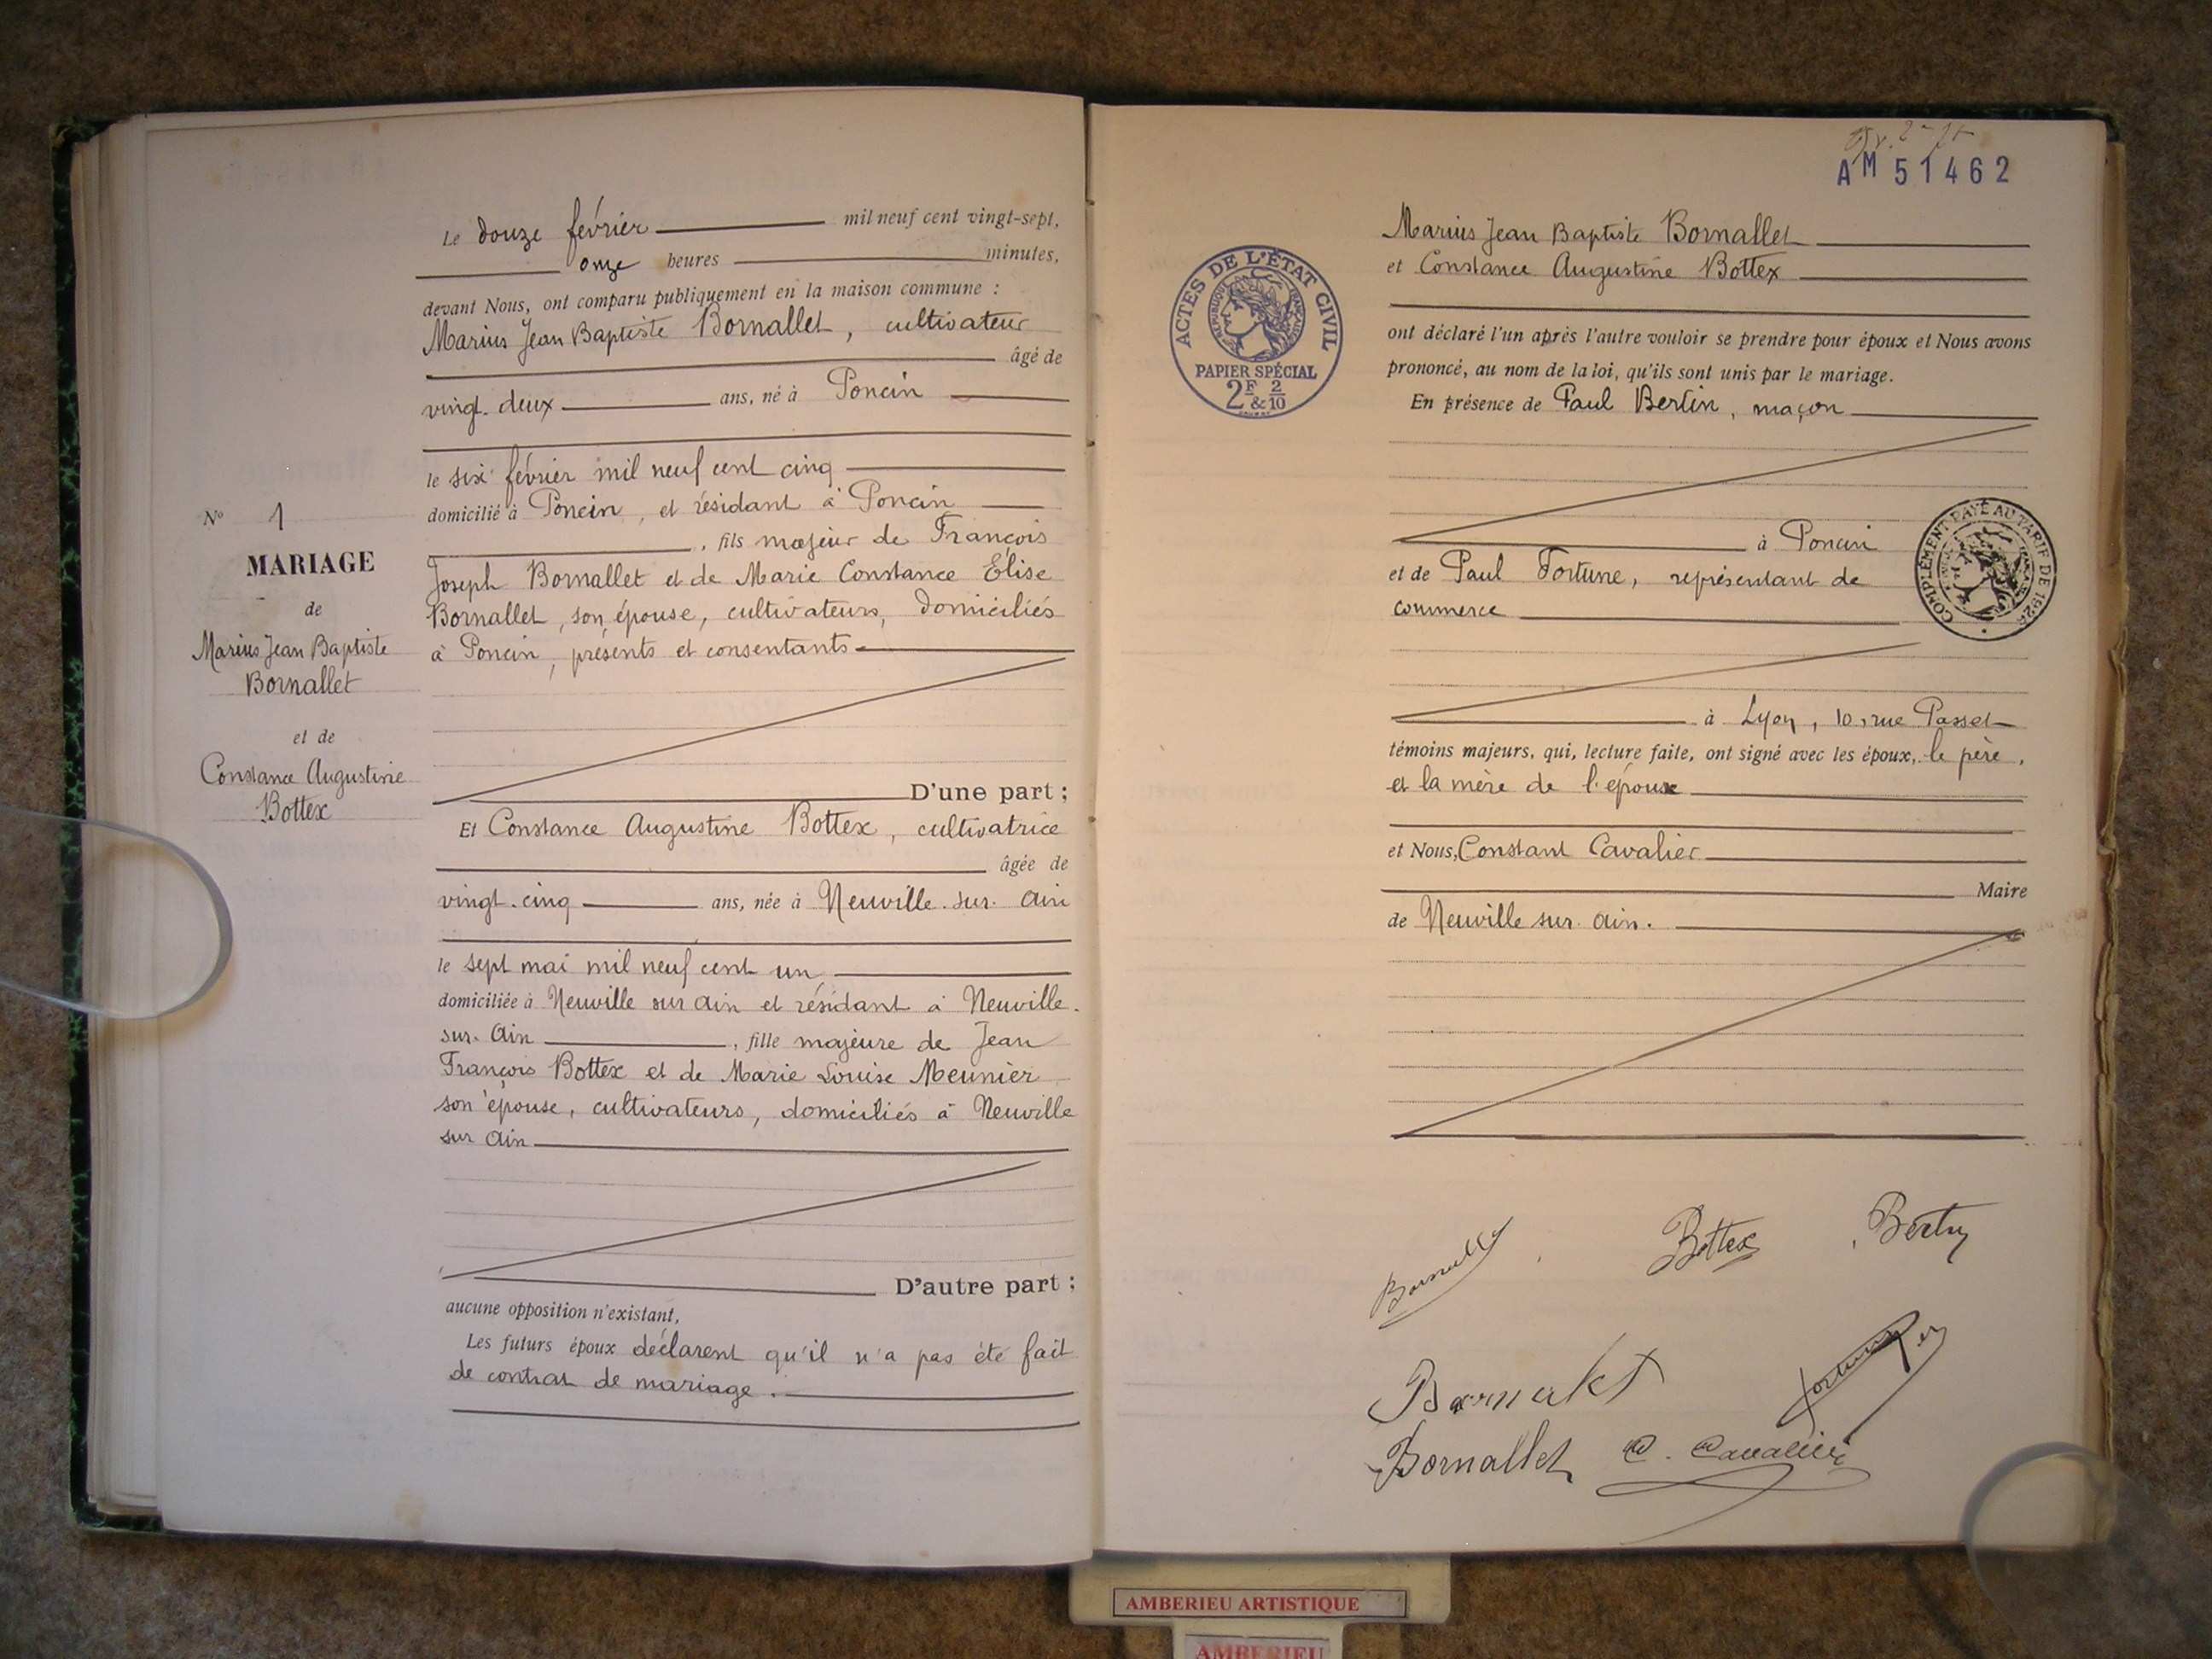 Nº 1
MARIAGE
de
Marius Jean Baptiste
Bornallet
et de
Constance Augustine
Bottex
Le douze février mil neuf cent vingt-sept,
onze heures minutes,
devant Nous, ont comparu publiquement en la maison commune :
Marius Jean Baptiste Bornallet, cultivateur
âgé de
vingt-deux ans, né à Poncin
le six février mil neuf cent cinq
domicilié à Poncin, et résidant à Poncin
, fils majeur de François
Joseph Bornallet et de Marie Constance Élise
Bornallet, son épouse, cultivateurs, domiciliés
à Poncin, présents et consentants
D'une part ;
Et Constance Augustine Bottex, cultivatrice
âgée de
vingt-cinq ans, née à Neuville-sur-Ain
le sept mai mil neuf cent un
domiciliée à Neuville sur Ain et résidant à Neuville-
sur-Ain , fille majeure de Jean
François Bottex et de Marie Louise Meunier
son épouse, cultivateurs, domiciliés à Neuville
sur Ain
D'autre part ;
aucune opposition n'existant,
Les futurs époux déclarent qu'il n'a pas été fait
de contrat de mariage.
AM 51462
ACTES DE L'ÉTAT CIVIL
RÉPUBLIQUE FRANÇAISE
PAPIER SPÉCIAL
2F & 2/10
Marius Jean Baptiste Bornallet
et Constance Augustine Bottex
ont déclaré l'un après l'autre vouloir se prendre pour époux et Nous avons
prononcé, au nom de la loi, qu'ils sont unis par le mariage.
En présence de Paul Bertin, maçon
à Poncin
et de Paul Fortune, représentant de
commerce
COMPLÉMENT PAYÉ AU TARIF DE
à Lyon, 10, rue Passet
témoins majeurs, qui, lecture faite, ont signé avec les époux, le père,
et la mère de l'époux
et Nous, Constant Cavalier
Maire
de Neuville sur Ain.
Bottex
Bertin
Bornallet
C. Cavalier
AMBERIEU ARTISTIQUE
AMBERIEU